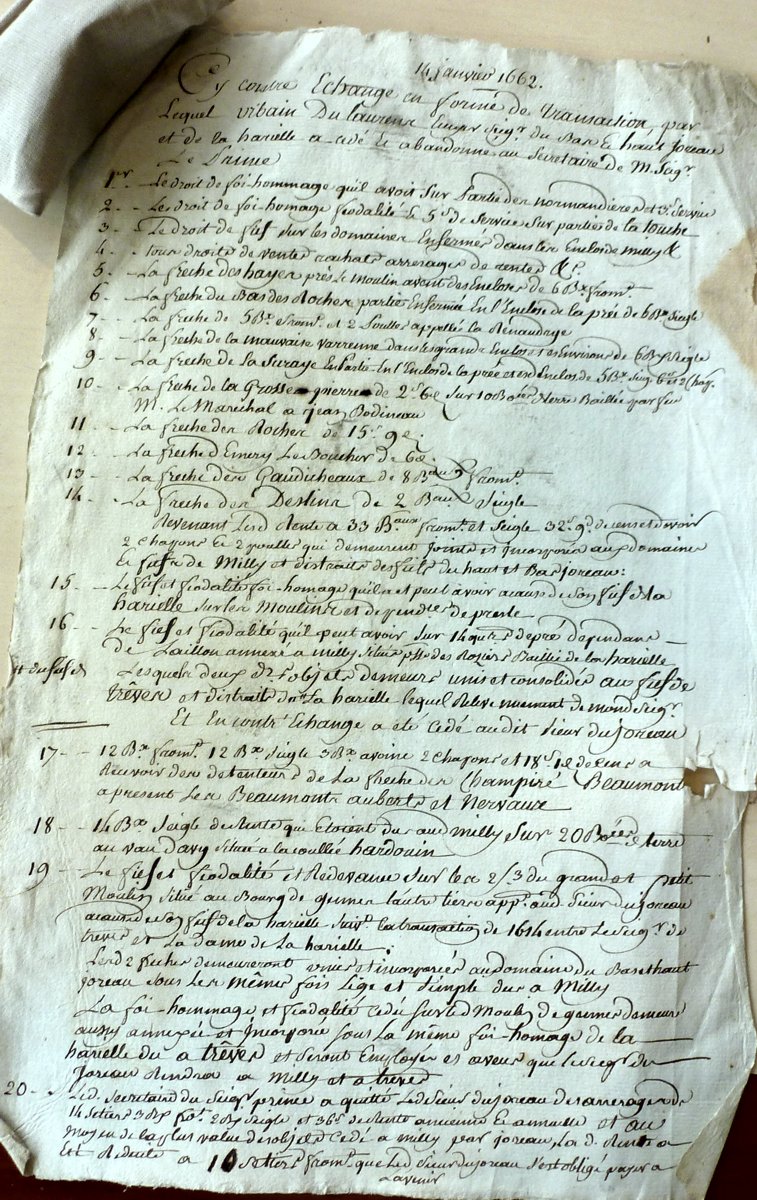 14 janvier 1662.
Cy contre Echange en forme de transaction, par
Lequel urbain Du Laurens Ecuyer Seigr. du Bas & haut joreau
et de la harielle a cédé & abandonné au Secretaire de M. Seigr.
Le Prince
1er - Le droit de foi-hommage qu'il avoit Sur Partie des normandieres et 3s. Service
2 - Les droit de foi-homage feodalité & 5d. de Service Sur parties de la touche
3 - Le droit de fief sur les domaines Enfermés dans les Enclos de milly &
4 - tous droits de ventes rachats arrerages de rentes &c.
5 - La freche des hayes près Le Moulin avant des Enclores de 6 Bx. from.t
6 - La freche du Bas des Rocher partie Enfermée En l'Enclos de la prée de 6 Bx Seigle
7 - La freche de 5 Bx. from.t et 2 Poulles appellée la Renaudaye
8 - La freche de la mauvaise varenne dans les grands Enclos et es Environs de 6 Bx Seigle
9 - La freche de La Suraye En Partie En l'Enclos de la prée et es Enclos de 5 Bx. Seig. 6s. et 2 Chap.
10 - La freche de la Grosse pierre de 2s. 6d. Sur 10 Boées. de terre Baillée par feu
M. Le Marechal a jean Bodineau
11 - La freche des Rocher de 15s. 9d.
12 - La freche d'Emery Le Boucher de 6d.
13 - La freche des Gaudicheaux de 8 Baux from.t
14 - La freche des Deslins de 2 Baux Seigle
Revenant Lesd. Rente a 33 Baux from.t et Seigle 32s. 9d. de cens et devoir
2 Chapons & 2 poulles qui demeurent joints et incorporés aux domaines
& fiefs de Milly et distraits des fiefs du haut et Bas joreau:
15 - Le fief et feodalité foi-homage qu'il a et peut avoir a cause de Son fief de la
harielle sur les Moulins et dependces de presle
16 - Le fief et feodalité qu'il peut avoir sur 14 qurs de pré dependans
de Laillon annexé a milly Situé psse des Roziers Baillée de lad. harielle
Lesquels deux drs. objets demeurs unis et consolidés au fief de
trêves et distrait de La harielle lequel Releve nuement de mond Seigr.
Et En contr'Echange a été cédé audit Sieur du joreau
17 - 12 Bx. from.t 12 Bx Seigle 3 Bx avoine 2 chapons et 18s. 1d. de cens a
Recevoir des détenteurs de La freche des Champiré Beaumont
a present Les Beaumonts auberts et Nervaux
18 - 14 Bx. Seigle de Rente qui Etoient dus aud milly Sur 20 Boées. de terre
au vau davy Situés a la coullée hardouin
19 - Le fief et feodalité et Redevance Sur les 2/3 du grand et petit
Moulin Situé au Bourg de gennes lautre tiers app. aud. Sieur du joreau
a cause de Son fief de la harielle Suiv.t la transaction de 1614 entre Le Seigr. de
treves et La dame de La harielle.
Lesd 2 freches demeureront unies et incorporées au domaine du Bas et haut
joreau sous les mêmes fois lige et Simple dus a Milly
La foi-hommage et feodalité cedée Sur le Moulin de gennes demeure
aussy annexée et incorporée sous la même foi-homage de la
harielle du a trêves et Seront Employés es aveus que le Seigr. du
joreau Rendra a Milly et a treves
20 - Led. Secretaire du Seigr. prince a quitté Led. Sieur du joreau des arrerages de
14 Setiers 3 Bx fot. 2 Bx Seigle et 36s. de Rente ancienne & annuelle et au
Moyen de la plus value des objets Cedé a milly par joreau, La d. Rente a
Eté Reduite a 10 Setiers from.t que Led Sieur du joreau S'est obligé payer a
Lavenir
et du fief de